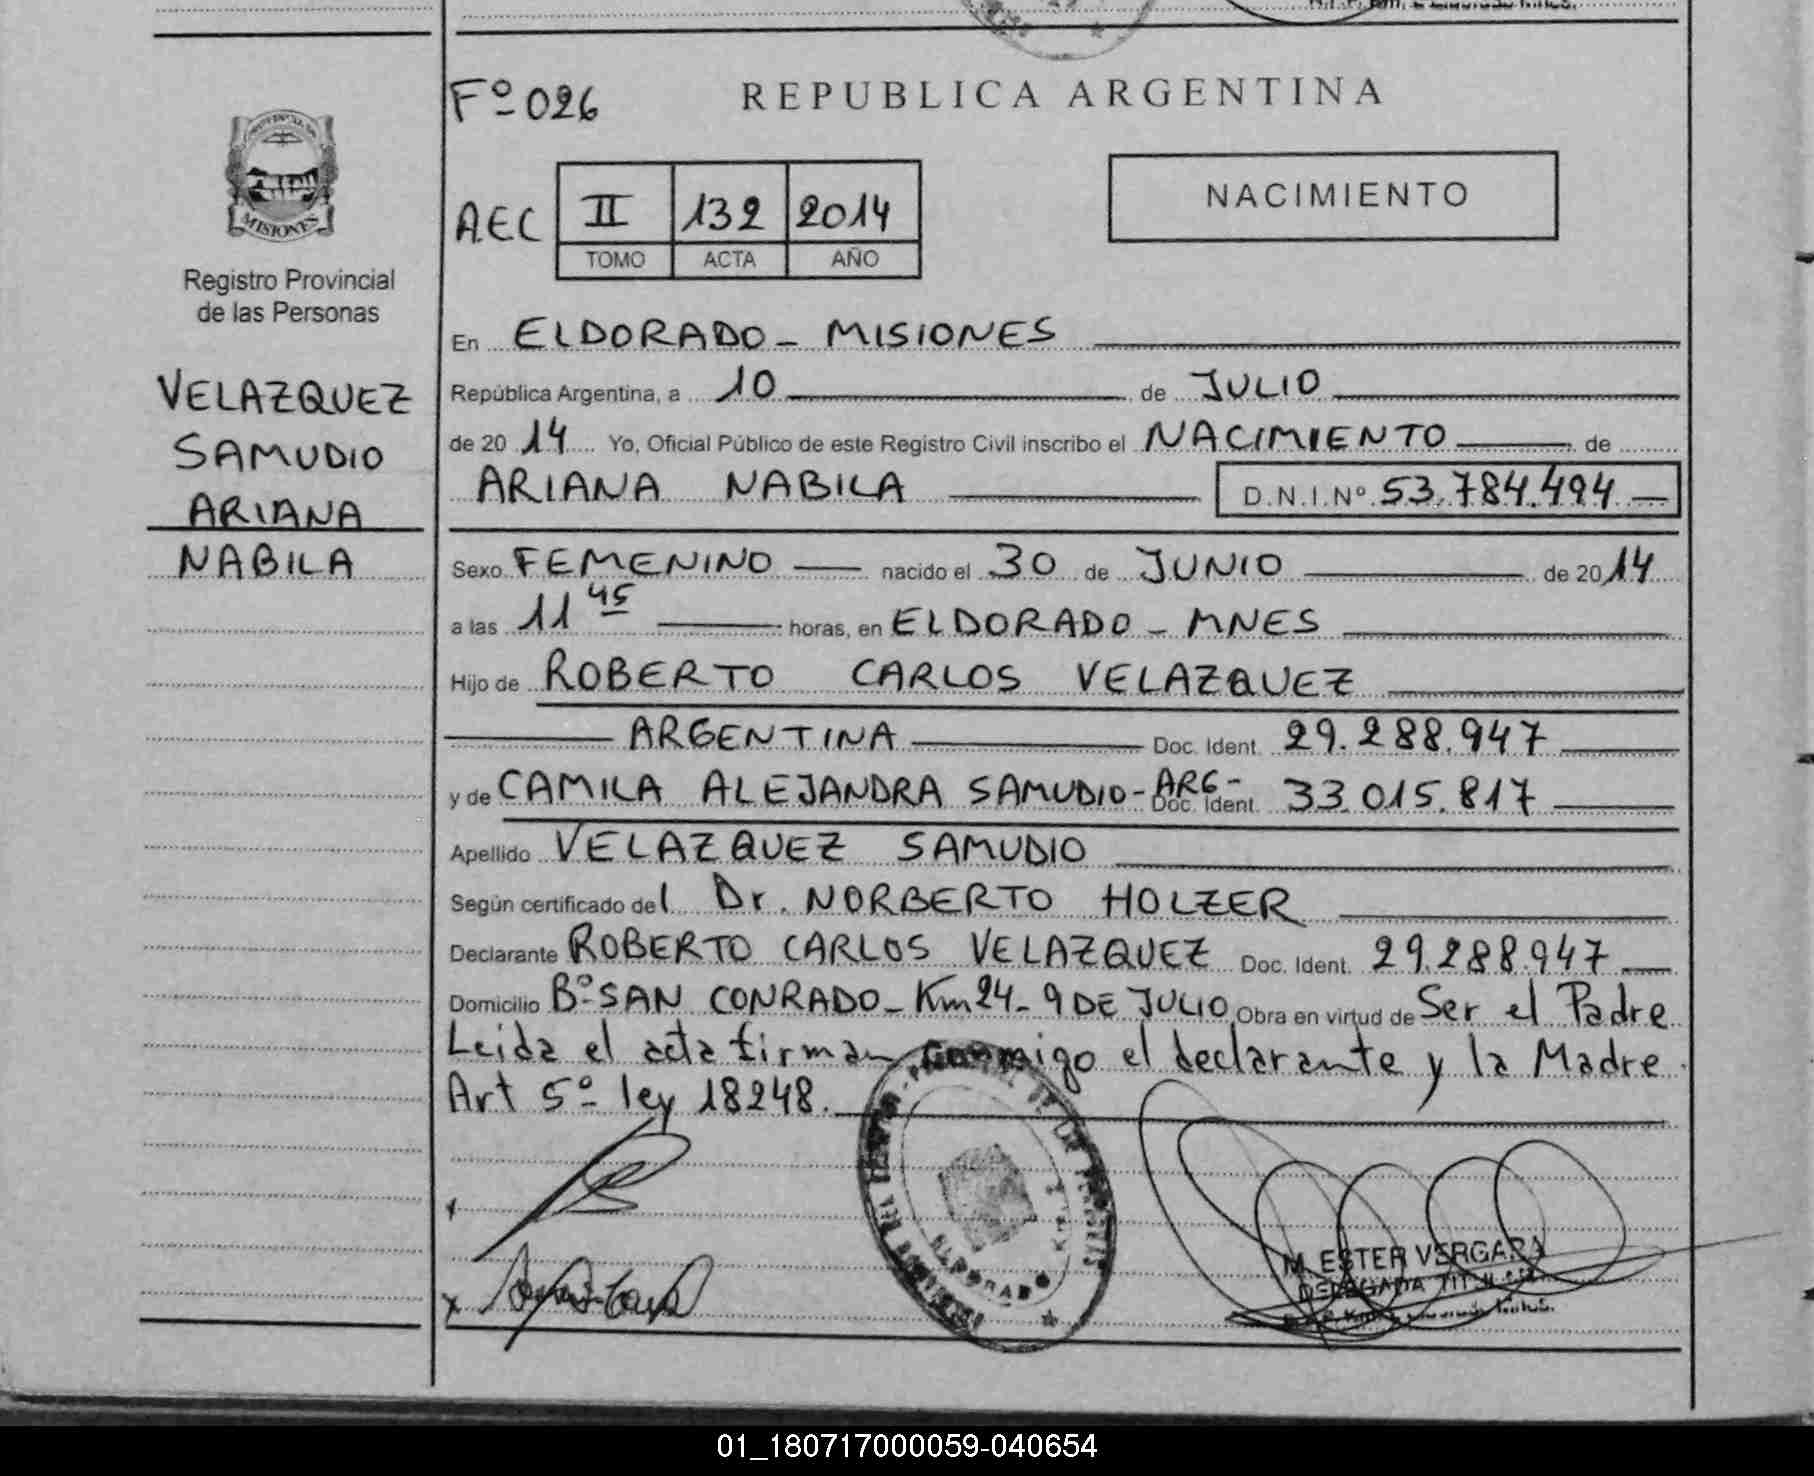 Fº 026
REPUBLICA ARGENTINA
NACIMIENTO
AEC II 132 2014
TOMO ACTA AÑO
MISIONES
Registro Provincial
de las Personas
VELAZQUEZ
SAMUDIO
ARIANA
NABILA
En ELDORADO - MISIONES
República Argentina, a 10 de JULIO
de 20 14 Yo, Oficial Público de este Registro Civil inscribo el NACIMIENTO de
ARIANA NABILA D.N.I.Nº 53.784.494
Sexo FEMENINO nacido el 30 de JUNIO de 20 14
a las 11 45 horas, en ELDORADO - MNES
Hijo de ROBERTO CARLOS VELAZQUEZ
ARGENTINA Doc. Ident. 29.288.947
y de CAMILA ALEJANDRA SAMUDIO - ARG - Doc. Ident. 33.015.817
Apellido VELAZQUEZ SAMUDIO
Según certificado del Dr. NORBERTO HOLZER
Declarante ROBERTO CARLOS VELAZQUEZ Doc. Ident. 29.288.947
Domicilio Bº SAN CONRADO - Km 24 - 9 DE JULIO Obra en virtud de Ser el Padre
Leida el acta firman conmigo el declarante y la Madre
Art 5º ley 18248.
ELDORADO
M. ESTER VERGARA
DELEGADA TITULAR
01_180717000059-040654